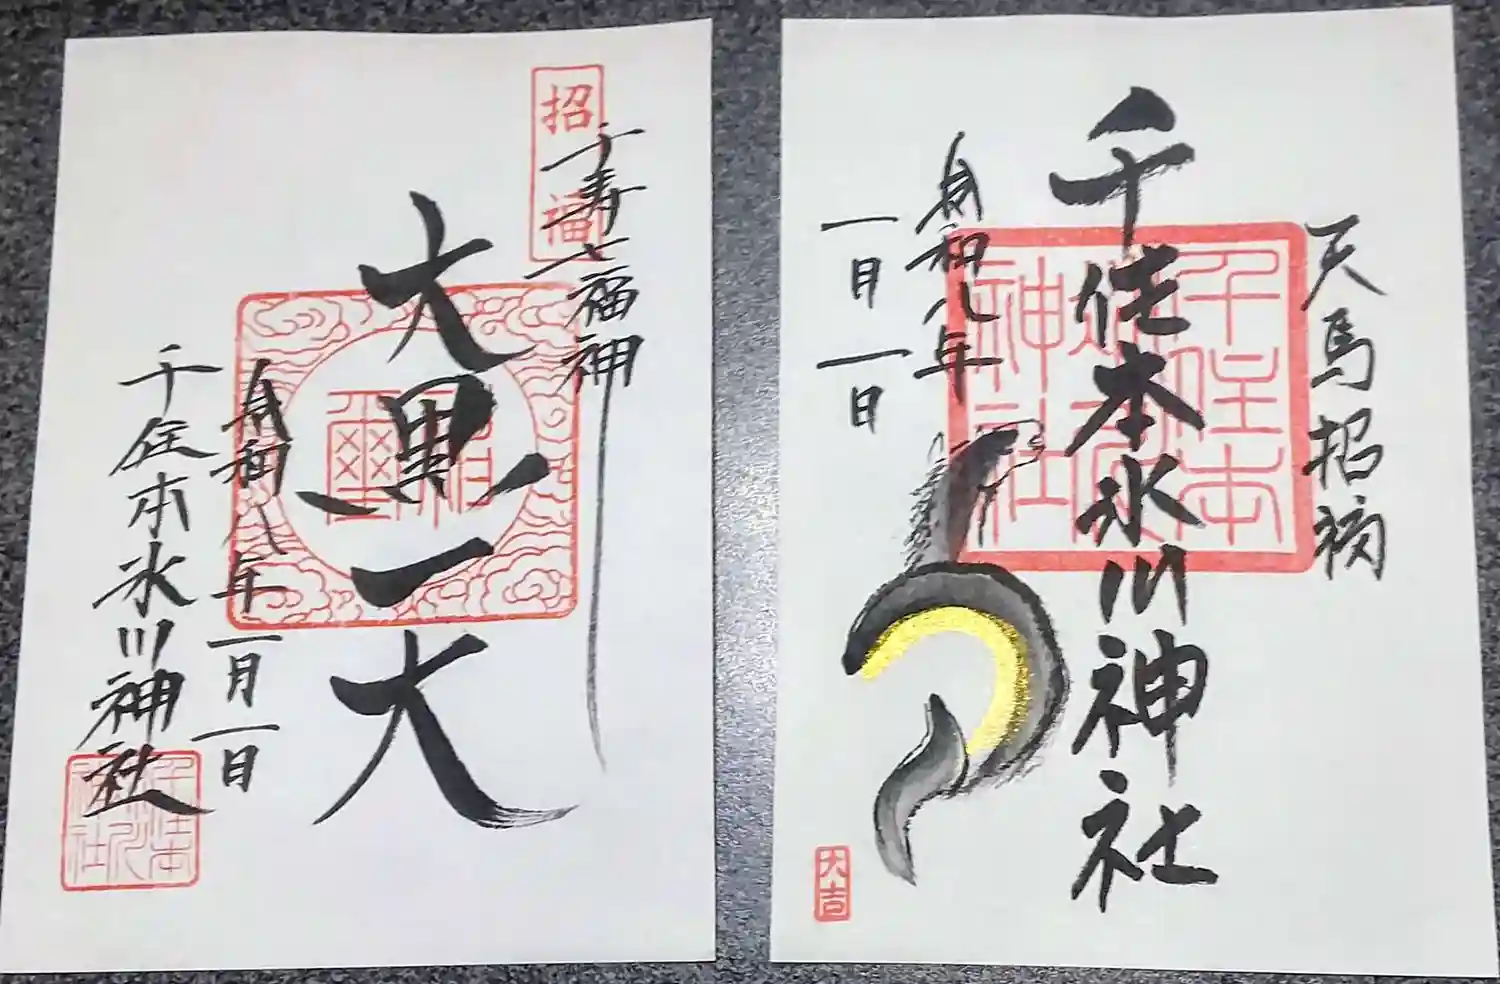 招福
千寿七福神
大黒天
令和八年一月一日
千住本氷川神社
千住本氷川神社
天馬招福
千住本氷川神社
千住本氷川神社
令和八年
一月一日
大吉